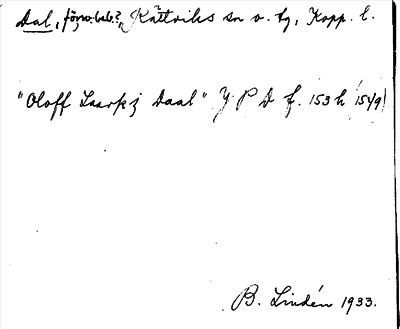 Dal, förs. beb.?, Rättviks sn o. by, Kopp. l.
"Oloff Laarss j Daal" Y P D f. 153 h 1549
B. Lindén 1933.